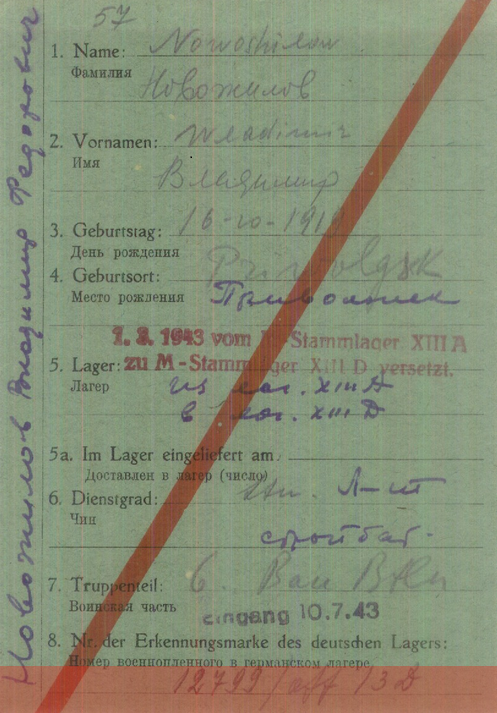 57
1. Name: Nowoshilow
Фамилия
Новожилов
2. Vornamen: Wladimir
Имя
Владимир
3. Geburtstag: 16-10-191
День рождения
4. Geburtsort:
Место рождения
1. 3. 1943 vom Stammlager XIII A
5. Lager: zu M-Stammlager XIII D versetzt.
Лагерь из лаг. XIII A
в лаг. XIII D
5a. Im Lager eingeliefert am
Доставлен в лагер (число)
6. Dienstgrad: Л-т
Чин
стройбат.
7. Truppenteil: 6. Bau Btln
Воинская часть
eingang 10.7.43
8. Nr. der Erkennungsmarke des deutschen Lagers:
Номер военнопленного в германском лагере.
12799 / off 13 D
Новожилов Владимир Федорович